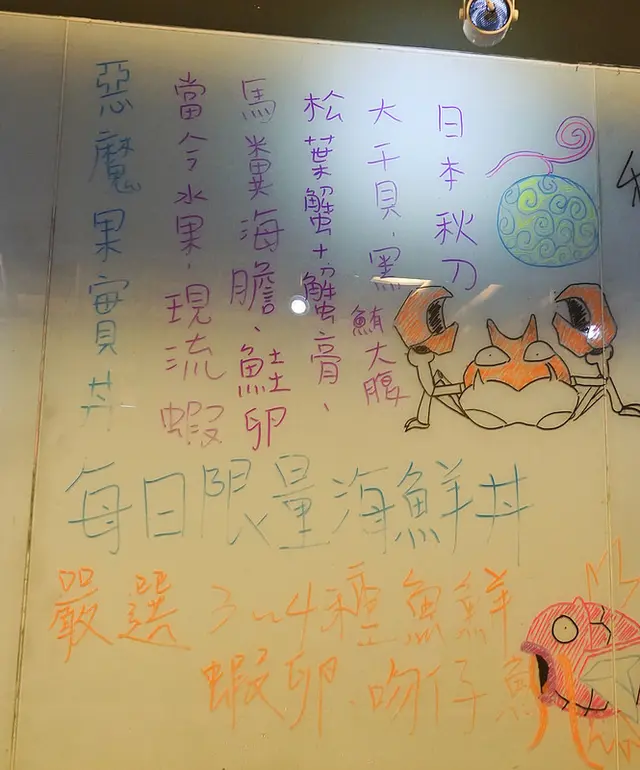 日本秋刀
大干貝、黑鮪大腹
松葉蟹+蟹膏、
馬糞海膽、鮭卵
當令水果、現流蝦
惡魔果實丼
每日限量海鮮丼
嚴選3~4種魚鮮
蝦卵、吻仔魚